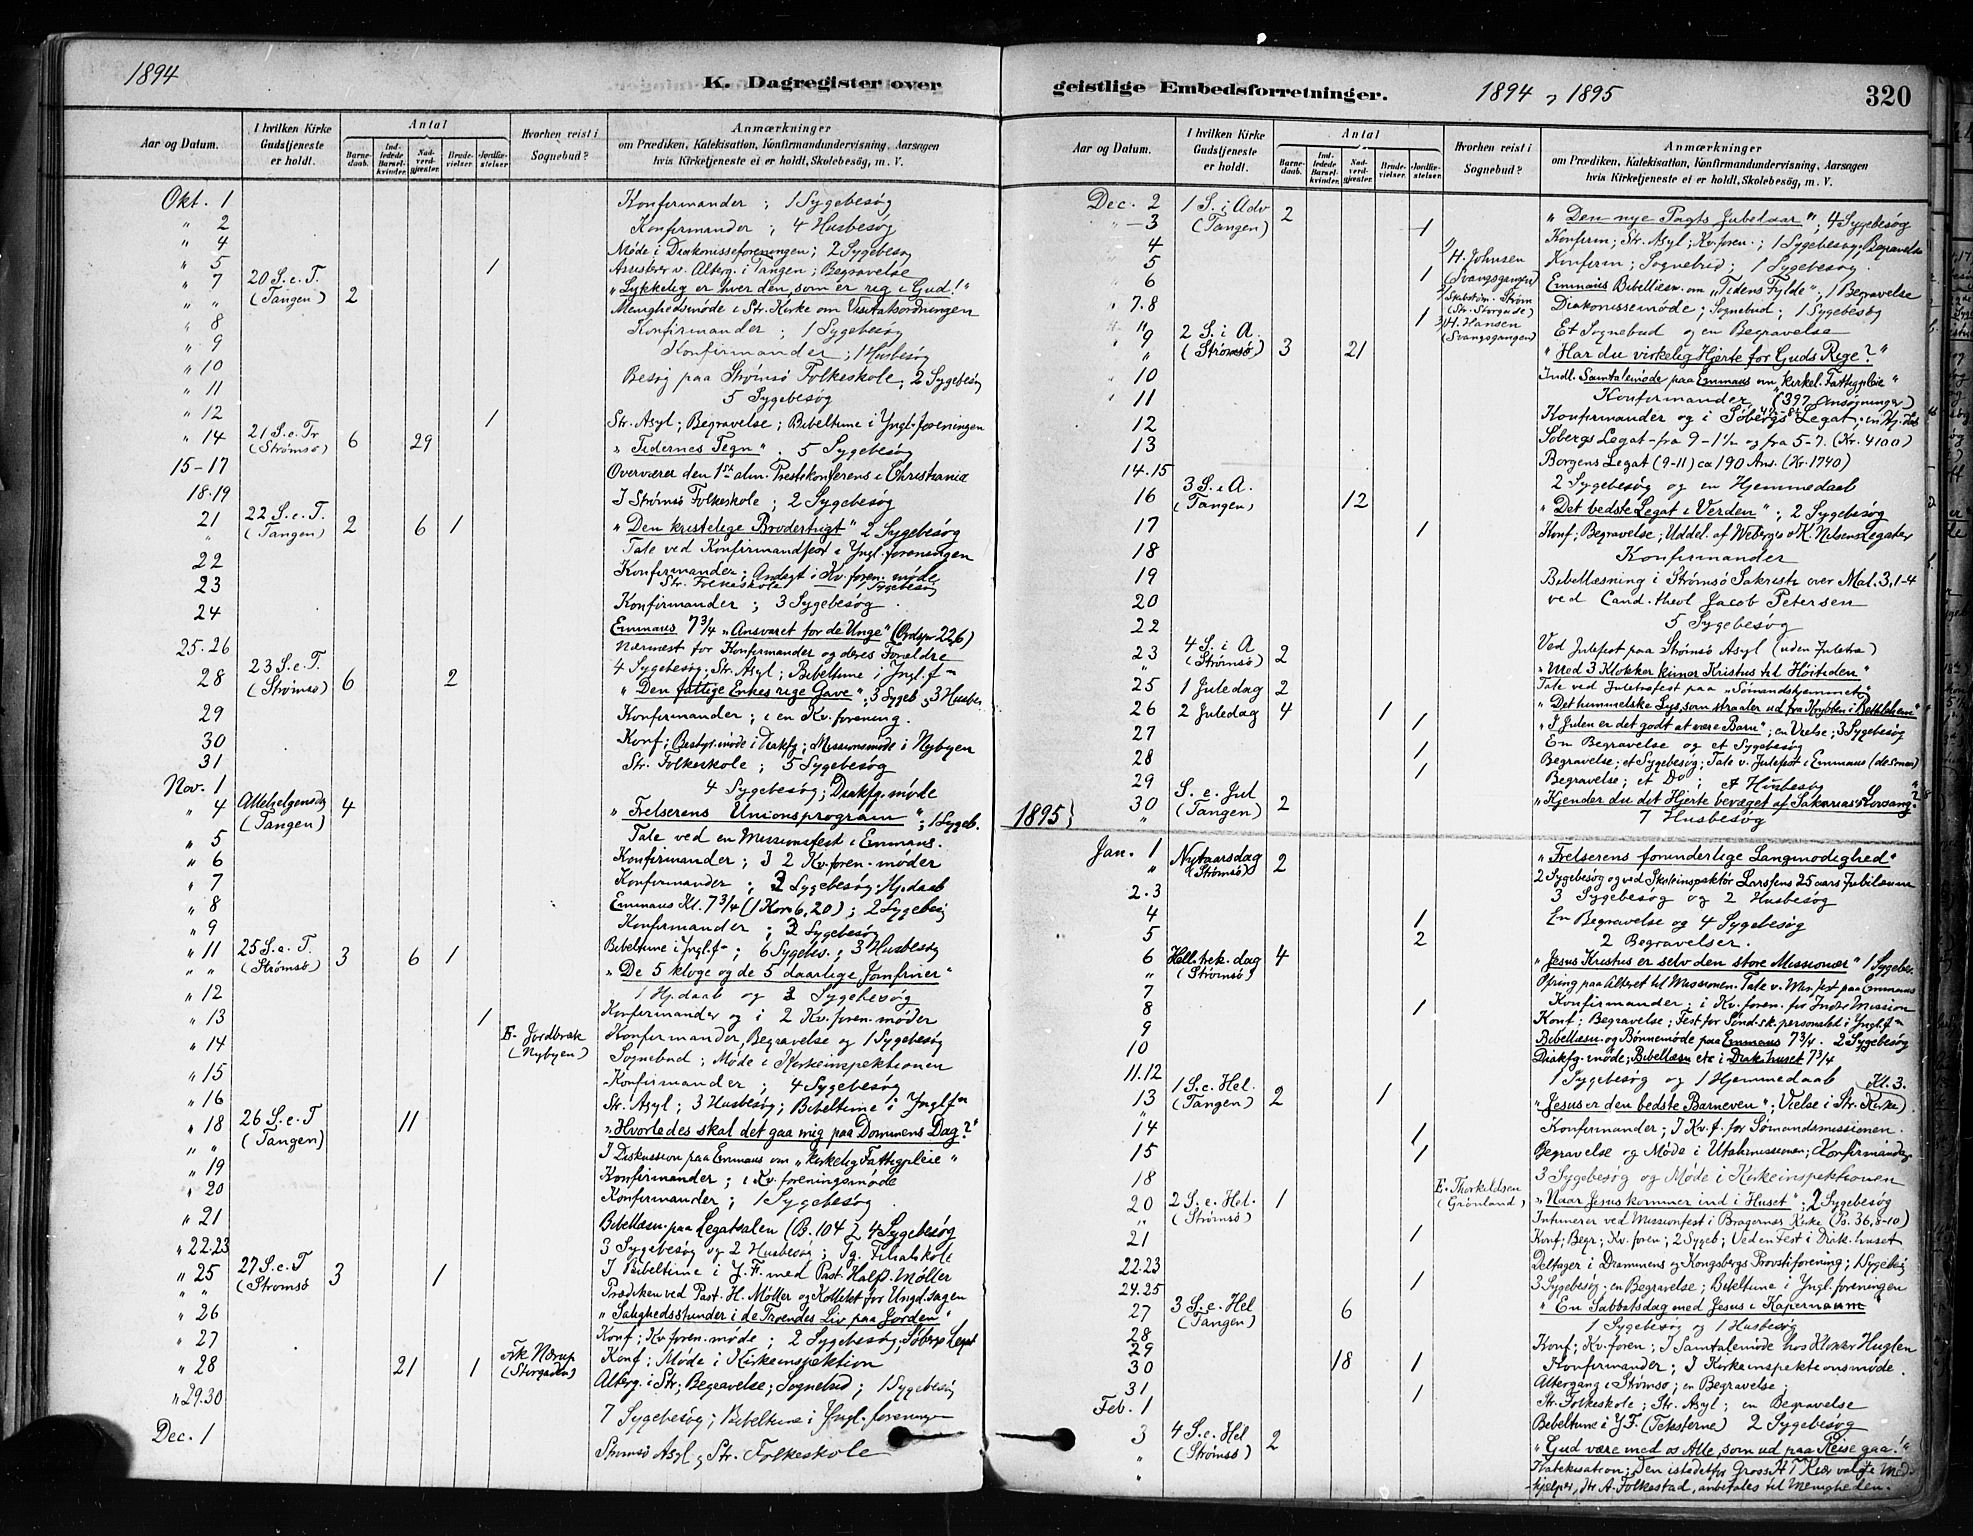 1894
K. Dagregister over
Aar og Datum.
I hvilken Kirke Gudstjeneste er holdt.
Antal
Barnedaab.
Indledede Barselkvinder.
Nadverdgjæster.
Brudevielser.
Jordfæstelser.
Hvorhen reist i Sognebud?
Anmærkninger
om Prædiken, Katekisation, Konfirmandundervisning, Aarsagen
hvis Kirketjeneste ei er holdt, Skolebesøg, m. V.
Okt. 1 Konfirmander ; 1 Sygebesøg
" 2 Konfirmander ; 4 Husbesøg
" 4 Møde i Diakonisseforeningen; 2 Sygebesøg
" 5 1 Assisterer v. Alterg. i Tangen; Begravelse
" 7 20 S. e. T. (Tangen) 2 "Lykkelig er hver den, som er rig i Gud!"
" " Menighedsmøde i Str. Kirke om Visitatsordningen
" 8 Konfirmander ; 1 Sygebesøg
" 9 Konfirmander ; 1 Husbesøg
" 10 Besøg paa Strømsø Folkeskole; 2 Sygebesøg
" 11 5 Sygebesøg
" 12 1 Str. Asyl; Begravelse; Bibeltime i Yngl. foreningen
" 14 21 S. e. Tr (Strømsø) 6 29 "Tidernes Tegn". 5 Sygebesøg
15-17 Overværer den 1ste alm. Prestekonferens i Christiania
18-19 I Strømsø Folkeskole ; 2 Sygebesøg
21 22 S. e. T. (Tangen) 2 6 1 "Den kristelige Brodertugt" 2 Sygebesøg
" Tale ved Konfirmandfest i Yngl. foreningen
22 Konfirmander; Andagt i Kv. foren. møde
23 Str. Folkeskole 1 Sygebesøg
24 Konfirmander ; 3 Sygebesøg
Emmaus 7 3/4 "Ansvaret for de Unge" (Ordspr 22,6)
Nærmest for Konfirmander og deres Forældre
25.26 4 Sygebesøg; Str. Asyl; Bibeltime i Yngl. f-
28 23 S. e. T. (Strømsø) 6 2 "Den fattige Enkes rige Gave"; 3 Sygeb. 3 Husbes.
29 Konfirmander ; i en Kv. forening.
30 Konf; Bestyr. møde i Diakfg; Missionsmøde i Nybyen
31 Str. Folkeskole ; 5 Sygebesøg
Nov. 1 4 Sygebesøg; Diakfg. møde
" 4 Allehelgensdg (Tangen) 4 "Frelserens Unionsprogram" ; 1 Sygeb.
" 5 Tale ved en Missionsfest i Emmaus.
" 6 Konfirmander ; I 2 Kv. foren. møder
" 7 Konfirmander ; 2 Sygebesøg; Hj. daab
" 8 Emmaus Kl. 7 3/4 (1 Kor 6,20) ; 2 Sygebesøg
" 9 Konfirmander ; 3 Sygebesøg
" 11 25 S. e. T. (Strømsø) 3 6 1 Bibeltime i Yngl. f- ; 6 Sygebes. ; 3 Husbesøg
" " "De 5 kloge og de 5 daarlige Jomfruer"
" 12 1 Hj. daab og 3 Sygebesøg
" 13 1 Konfirmander og i 2 Kv. foren. møder
" 14 E. Jordbræk (Nybyen) Konfirmander, Begravelse og 1 Sygebesøg
" 15 Sognebud ; Møde i Kirkeinspektionen
" 16 Konfirmander ; 4 Sygebesøg
Str. Asyl ; 3 Husbesøg; Bibeltime i Yngl. f-
" 18 26 S. e. T (Tangen) 11 "Hvorledes skal det gaa mig paa Dommens Dag?"
" " I Diskussion paa Emmaus om "kirkelig Fattigpleie"
" 19 Konfirmander ; i Kv. foreningsmøde
" 20 Konfirmander ; 1 Sygebesøg
" 21 Bibellæsn. paa Legatsalen (Ps. 104) 4 Sygebesøg
" 22.23 3 Sygebesøg og 2 Husbesøg ; Tg. Filialskole
" 25 27 S. e. T (Strømsø 3 1 I Bibeltime i Y. F. med Past. Half. Møller
" " Prædiken ved Past. H. Møller og Kollekt for Ungd. sagen
" 26 "Salighedsstunder i de Troendes Liv paa Jorden"
" 27 Konf; Kv. foren. møde ; 2 Sygebesøg; Søbergs Legat
" 28 21 1 Frk Nærup (Storgaden) Konf; Møde i Kirkeinspektion
" 29.30 Alterg. i Str; Begravelse; Sognebud ; 1 Sygebesøg
7 Sygebesøg; Bibeltime i Yngl. forening
Dec. 1 Strømsø Asyl, Str. Folkeskole
geistlige Embedsforretninger.
1894 , 1895
320
Aar og Datum.
I hvilken Kirke Gudstjeneste er holdt.
Antal
Barnedaab.
Indledede Barselkvinder.
Nadverdgjæster.
Brudevielser.
Jordfæstelser.
Hvorhen reist i Sognebud?
Anmærkninger
om Prædiken, Katekisation, Konfirmandundervisning, Aarsagen
hvis Kirketjeneste ei er holdt, Skolebesøg, m. V.
Dec. 2 1 S. i Adv (Tangen) 2 "Den nye Pagts Jubelaar"; 4 Sygebesøg
" 3 1 Konfirm; Str. Asyl; Kv. foren. ; 1 Sygebesøg; Begravelse
4 H. Johnsen (Svangsgangen) Konfirm; Sognebud ; 1 Sygebesøg.
5 1 Emmaus Bibellæsn. om "Tidens Fylde"; 1 Begravelse
6 Skibstøm. Strøm (Str. Storgade) Diakonissemøde; Sognebud ; 1 Sygebesøg
7.8 1 H. Hansen (Svangsgangen) Et Sognebud og en Begravelse
" 9 2 S. i A. (Strømsø) 3 21 "Har du virkelig Hjerte for Guds Rige?"
" Indl. Samtalemøde paa Emmaus om "kirkel. Fattigpleie"
10 Konfirmander (397 Ansøgninger)
11 Konfirmander og i Søbergs Legat; en Hj. db
12 Søbergs Legat fra 9-1 1/2 og fra 5-7. (Kr. 4100)
13 Borgens Legat (9-11) ca 190 Ans. (Kr. 1740)
14.15 2 Sygebesøg og en Hjemmedaab
16 3 S. i A. (Tangen) 12 "Det bedste Legat i Verden"; 2 Sygebesøg
17 1 Konf; Begravelse; Uddel. af Webergs o K. Nilsens Legater
18 Konfirmander
19 Bibellæsning i Strømsø Sakristi over Mal. 3, 1-4
20 ved Cand. theol Jacob Petersen
22 5 Sygebesøg
23 4 S. i A (Strømsø) 2 Ved Julefest paa Strømsø Asyl (uden Juletræ)
" "Med 3 Klokker kimer Kristus til Høitiden"
Tale ved Juletræfest paa "Sømandshjemmet"
25 1 Juledag 2 "Det himmelske Lys, som straaler ud fra Krybben i Bethlehem"
26 2 Juledag 4 1 1 "I Julen er det godt at være Barn"; en Vielse; 3 Sygebesøg
27 En Begravelse og et Sygebesøg
28 1 Begravelse; et Sygebesøg; Tale v. Julefest i Emmaus (de Smaa)
29 1 Begravelse; et Do ; et Husbesøg
30 S. e. Jul (Tangen) 2 "Kjender du det Hjerte bevæget af Sakarias's Lovsang?"
" 7 Husbesøg
1895
Jan. 1 Nytaarsdag (Strømsø) 2 "Frelserens forunderlige Langmodighed"
" 2 Sygebesøg og ved Skoleinspektør Larssens 25 aars Jubilæum
2.3 3 Sygebesøg og 2 Husbesøg
4 1 En Begravelse og 4 Sygebesøg
5 2 2 Begravelser.
6 Hell. trek. dag (Strømsø) 4 "Jesus Kristus er selv den store Missionær" 1 Sygebes.
" Ofring paa Alteret til Missionen. Tale v. Mis. fest paa Emmaus
7 Konfirmander ; i Kv. foren. for Indre Mission
8 1 Konf; Begravelse; Fest for Sønd. sk. personalet i Yngl. f-
9 Bibellæsn. og Bønnemøde paa Emmaus 7 3/4. 2 Sygebesøg
10 Diakfg. møde; Bibellæsn etc i Diak. huset 7 3/4
11.12 1 Sygebesøg og 1 Hjemmedaab Kl. 3.
13 1 S. e. Hel. (Tangen) 2 1 "Jesus er den bedste Barneven"; Vielse i Str. Kirke)
" 14 1 Konfirmander ; I Kv. f. for Sømandsmissionen.
15 1 Begravelse og Møde i Utahmissionen; Konfirmander
18 3 Sygebesøg og Møde i Kirkeinspektionen
20 2 S. e. Hel. (Strømsø) 1 E. Thorkildsen (Grønland) "Naar Jesus kommer ind i Huset"; 2 Sygebesøg
" Intimerer ved Missionsfest i Bragernæs Kirke (Ps. 36, 8-10)
21 1 Konf; Begr; Kv. foren; 2 Sygeb; Ved en Fest i Diak. huset
22.23 Deltager i Drammens og Kongsbergs Provstiforening; 1 Sygebesøg
24.25 1 3 Sygebesøg; en Begravelse; Bibeltime i Yngl. foreningen
27 3 S. e. Hel (Tangen) 6 "En Sabbatsdag med Jesus i Kapernaum"
1 Sygebesøg og 1 Husbesøg
28 Konf; Kv. foren; I Samtalemøde hos Klokker Huglen
29 Konfirmander ; I Kirkeinspektionsmøde
30 18 1 Altergang i Strømsø; en Begravelse;
31 1 Str. Folkeskole; Str. Asyl; en Begravelse
Feb. 1 Bibeltime i Y. F. (Teksterne) 2 Sygebesøg
3 4 S. e. Hel (Strømsø) 2 "Gud være med os Alle, som ud paa Reise gaa!"
" Katekisation; Den istedetfor Gross. H T Kiær valgte Med-
" hjelper, Hr. A. Folkestad, anbefales til Menigheden.